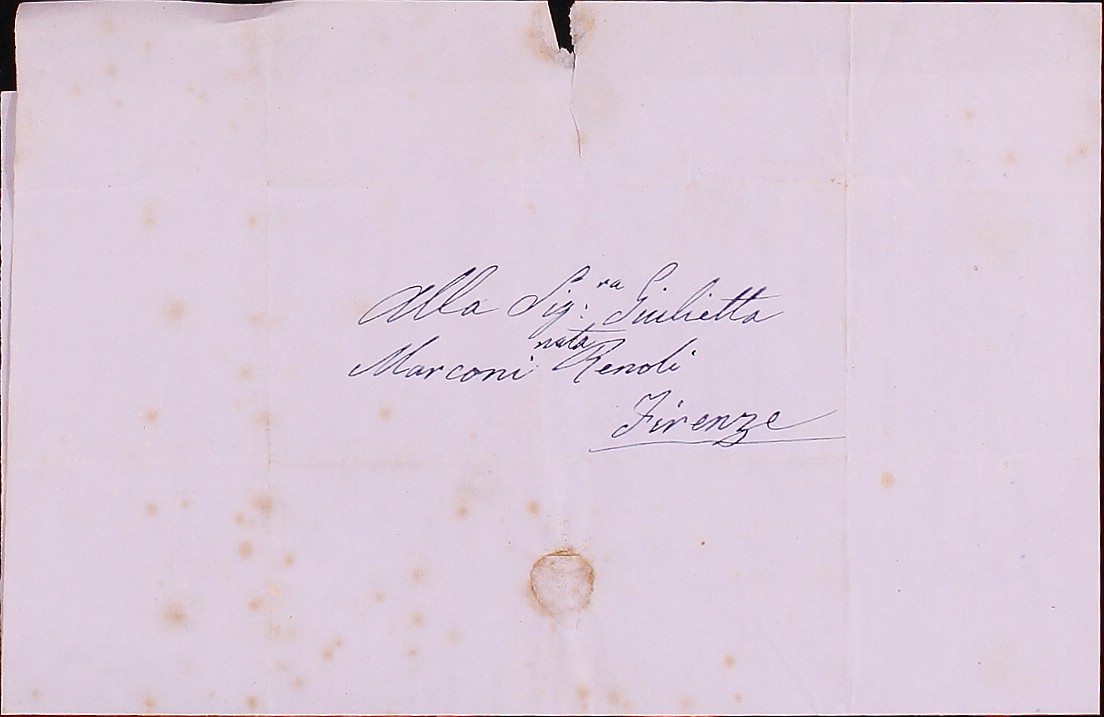 Alla Sig:ra Giulietta
Marconi nata Renoli
Firenze